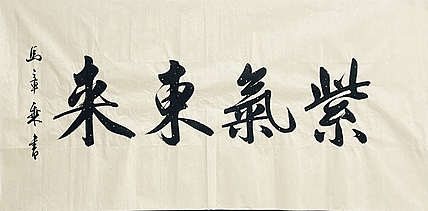 紫氣東来
馬章乘書